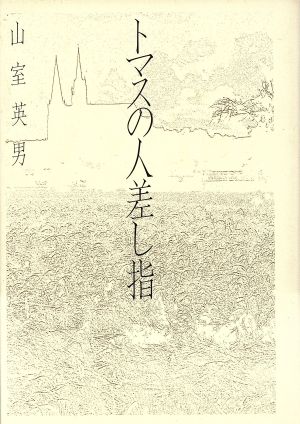 トマスの人差し指
山室英男